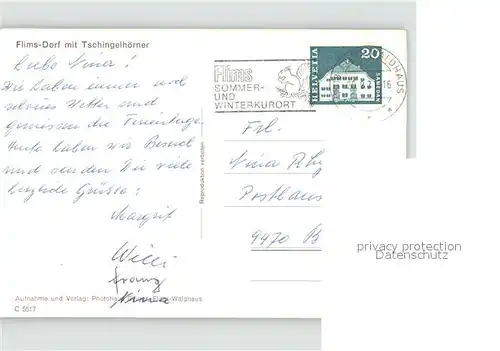 Flims-Dorf mit Tschingelhörner
Liebe Nina!
Wir haben immer noch
schönes Wetter und
geniessen die Ferientage.
Heute haben wir Besuch
und senden Dir viele
herzliche Grüsse:
Margrit
Willi
Franz
Flims
SOMMER-
UND
WINTERKURORT
HELVETIA
20
WALDHAUS
Reproduktion verboten
Frl.
Nina
Posthaus
9470 B
privacy protection
Datenschutz
Aufnahme und Verlag: Photohaus Flims-Waldhaus
C 5517